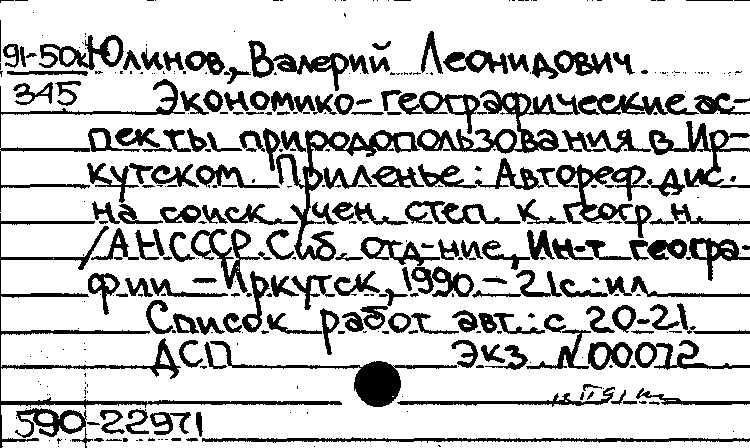 91-50к Юлинов, Валерий Леонидович.
345 Экономико-географические ас-
пекты природопользования в Ир-
кутском Приленье: Автореф. дис.
на соиск. учен. степ. к. геогр. н.
/АН СССР. Сиб. отд-ние, Ин-т геогра-
фии. - Иркутск, 1990. - 21с.: ил.
Список работ авт.: с. 20-21.
ДСП Экз. N 00072
590-22971